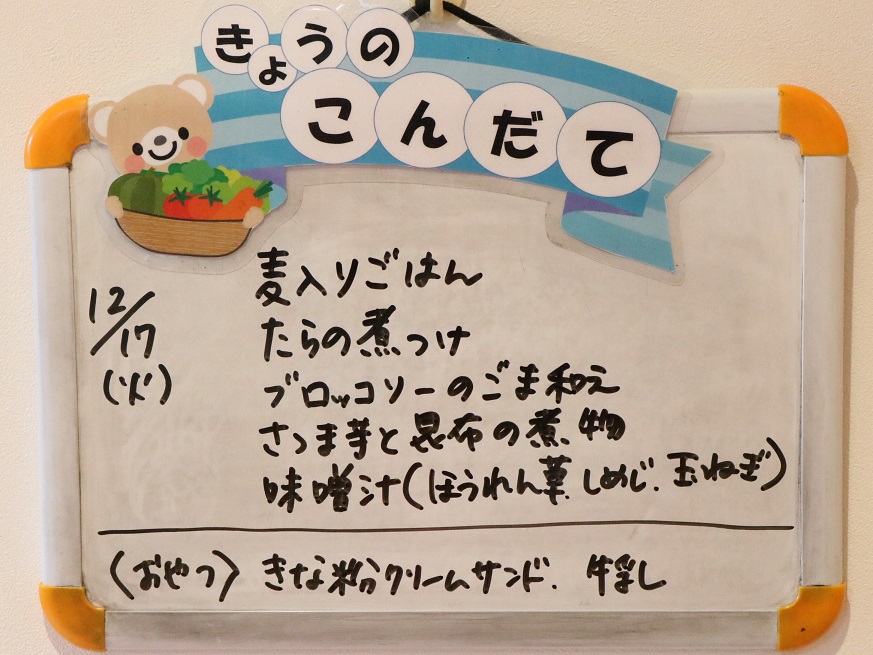 きょうの
こんだて
12/17
(火)
麦入りごはん
たらの煮つけ
ブロッコリーのごま和え
さつま芋と昆布の煮物
味噌汁(ほうれん草.しめじ.玉ねぎ)
〈おやつ〉 きな粉クリームサンド. 牛乳